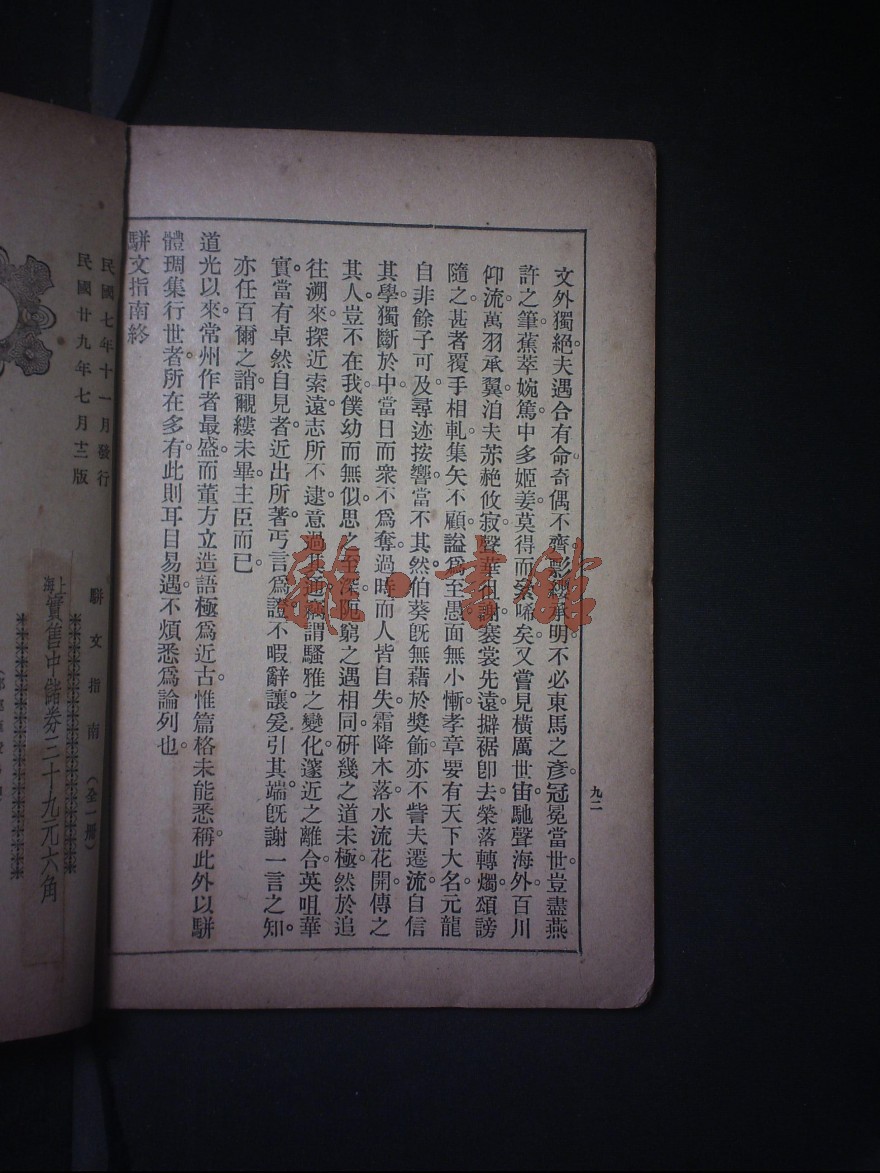 文外獨絕。夫遇合有命。奇偶不齊。影纓承明。不必東馬之彥。冠冕當世。豈盡燕
許之筆。蕉萃婉篤。中多姬姜。莫得而
唏矣。又嘗見橫厲世宙。馳聲海外。百川
仰流。萬羽承翼。洎夫赤赩攸寂。聲華
謝。褰裳先遠。擗裾卽去。榮落轉燭。頌謗
隨之。甚者覆手相軋。集矢不顧。謚爲至愚。面無小慚。孝章要有天下大名。元龍
自非餘子可及。尋迹按響。當不其然。伯葵旣無藉於獎飾。亦不訾夫遷流。自信
其學。獨斷於中。當日而衆不爲奪。過時而人皆自失。霜降木落。水流花開。傳之
其人。豈不在我。僕幼而無似。思之至深。阨窮之遇相同。研幾之道未極。然於追
往溯來。探近索遠。志所不逮。意過其通。竊謂騷雅之變化。邃近之離合。英咀華
實。當有卓然自見者。近出所著。丐言爲證。不暇辭讓。爰引其端。旣謝一言之知。
亦任百爾之誚。覼縷未畢。主臣而已。
道光以來。常州作者最盛。而董方立造語極爲近古。惟篇格未能悉稱。此外以駢
體琱集行世者。所在多有。此則耳目易遇。不煩悉爲論列也。
駢文指南終
九二
民國七年十一月發行
民國廿九年七月十三版
駢文指南（全一冊）
上海實售中儲券三十九元六角
雜·書館